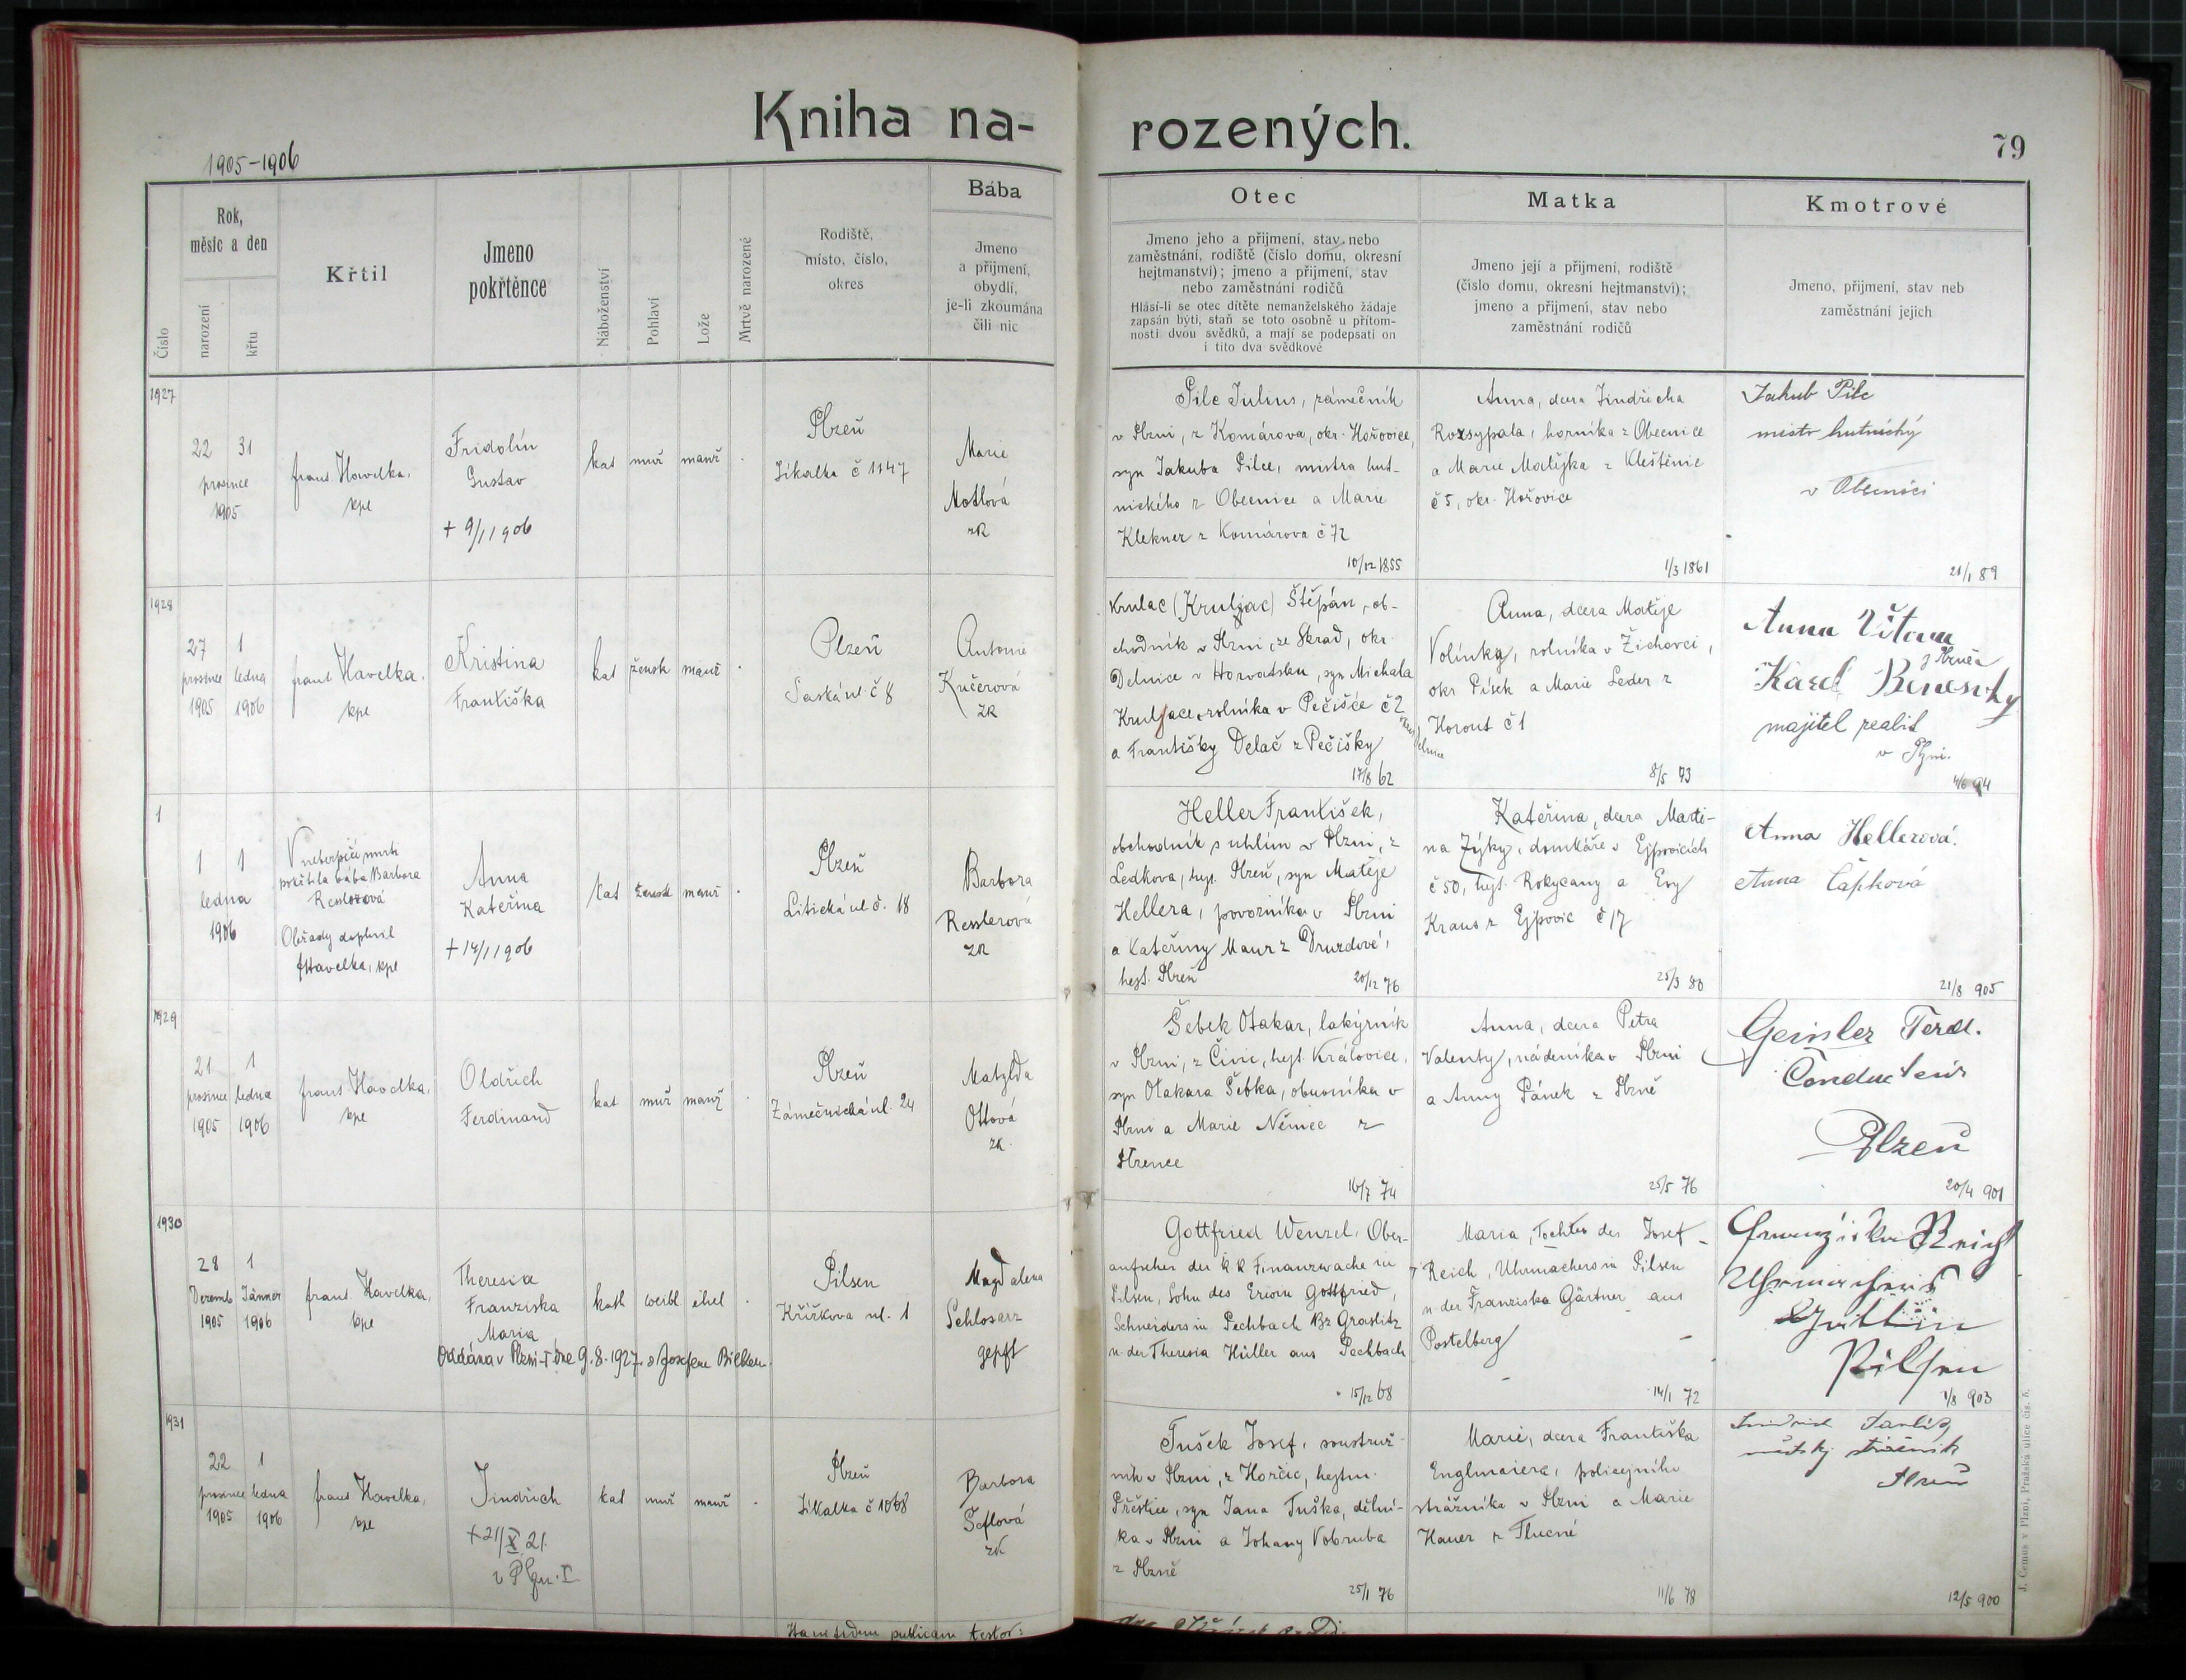 Kniha na-
rozených.
79
1905-1906
Číslo
Rok,
měsíc a den
narození
křtu
Křtil
Jmeno
pokřtěnce
Náboženství
Pohlaví
Lože
Mrtvě narozené
Rodiště,
místo, číslo,
okres
Bába
Jmeno
a přijmení,
obydlí,
je-li zkoumána
čili nic
Otec
Jmeno jeho a přijmení, stav nebo
zaměstnání, rodiště (číslo domu, okresní
hejtmanství); jmeno a přijmení, stav
nebo zaměstnání rodičů
Hlásí-li se otec dítěte nemanželského žádaje
zapsán býti, staň se toto osobně u přítom-
nosti dvou svědků, a mají se podepsati on
i tito dva svědkové
Matka
Jmeno její a přijmení, rodiště
(číslo domu, okresní hejtmanství);
jmeno a přijmení, stav nebo
zaměstnání rodičů
Kmotrové
Jmeno, přijmení, stav neb
zaměstnání jejich
1927
22 31
prosince
1905
frant. Havelka,
kpl
Fridolín
Gustav
+ 9/1 1906
kat
muž
manž
Plzeň
Jikalka č 1147
Marie
Motlová
zk
Pilc Julius, zámečník
v Plzni, z Komárova, okr. Hořovice,
syn Jakuba Pilce, mistra hut-
nického z Obecnice a Marie
Klekner z Komárova č 72
10/12 1855
Anna, dcera Jindřicha
Rozsypala, horníka z Obecnice
a Marie Matějka z Kleštěnic
č 5, okr. Hořovice
1/3 1861
Jakub Pilc
mistr hutnický
v Obecnici
21/1 89
1928
27 1
prosince ledna
1905 1906
frant Havelka,
kpl
Kristina
Františka
kat
žensk
manž
Plzeň
Saská ul. č 8
Antonie
Kučerová
zk
Krulac (Kruljac) Štěpán, ob-
chodník v Plzni, ze Skrad, okr.
Delnice v Horvatsku, syn Michala
Kruljace, rolníka v Pečišće č 2
a Františky Delač z Pečišky
17/8 62
Anna, dcera Matěje
Volínky, rolníka v Žichovci,
okr Písek a Marie Leder z
Horout č 1
8/5 73
Anna
z Plzně
Karel Benesvky
majitel realit
v Plzni.
94
1
1 1
ledna
1906
V nebezpečí smrti
pokřtila bába Barbora
Resslerová
Obřady doplnil
f Havelka, kpl
Anna
Kateřina
+ 14/1 1906
kat
žensk
manž
Plzeň
Litická ul č. 18
Barbora
Resslerová
zk
Heller František,
obchodník s uhlím v Plzni, z
Ledkova, hejt. Plzeň, syn Matěje
Hellera, povozníka v Plzni
a Kateřiny Maur z Druzdové,
hejt. Plzeň
20/12 76
Kateřina, dcera Marti-
na Zýky, domkáře v Ejpovicích
č 50, hejt. Rokycany a Evy
Kraus z Ejpovic č 17
25/3 80
Anna Hellerová.
Anna Čapková
21/8 905
1929
21 1
prosince ledna
1905 1906
frant Havelka,
kpl
Oldřich
Ferdinand
kat
muž
manž
Plzeň
Zámečnická ul. 24
Matylda
Ottová
zk.
Šebek Otakar, lakýrník
v Plzni, z Čivic, hejt. Královice,
syn Otakara Šebka, obuvníka v
Plzni a Marie Němec z
Plzence
16/7 74
Anna, dcera Petra
Valenty, nádeníka v Plzni
a Anny Pánek z Plzně
25/5 76
Geissler Ferd.
Conducteur
Plzeň
20/4 901
1930
28 1
Decemb Jänner
1905 1906
frant. Havelka,
kpl
Theresia
Franziska
Maria
Oddána v Plzni-I dne 9.8.1927 s Josefem
kath
weibl
ehel
Pilsen
Křižkova ul. 1
Magdalena
Schlosarz
gepft
Gottfried Wenzel, Ober-
aufseher der k k Finanzwache in
Pilsen, Sohn des Erwin Gottfried,
Schneiders in Pechbach Bz Graslitz
u der Theresia Hüller aus Pechbach
15/12 68
Maria, Tochter des Josef
Reich, Uhrmachers in Pilsen
u der Franziska Gärtner aus
Postelberg
14/1 72
Franziska Reich
Uhrmachers
Gattin
Pilsen
1/8 903
1931
22 1
prosince ledna
1905 1906
frant Havelka,
kpl
Jindřich
+ 21/X 21.
v Plzni. I
kat
muž
manž
Plzeň
Jikalka č 1068
Barbora
Šeflová
zk
Tušek Josef, soustruž-
ník v Plzni, z Horčic, hejtm.
Přeštice, syn Jana Tuška, dělní-
ka v Plzni a Johany Vobruba
z Plzně
25/1 76
Marie, dcera Františka
Englmaiera, policejního
strážníka v Plzni a Marie
Hauer z Tlucné
11/6 78
Jindřich
městský strážník
Plzeň
12/5 900
Hanc fidem publicam testor:
J. Černus v Plzni, Pražská ulice čís. 5.